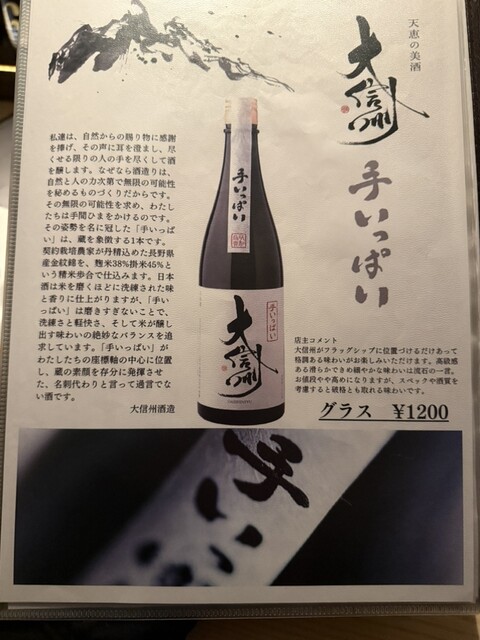 天恵の美酒
大信州
手いっぱい
私達は、自然からの賜り物に感謝
を捧げ、その声に耳を澄まし、尽
くせる限りの人の手を尽くして酒
を醸します。なぜなら酒造りは、
自然と人の力次第で無限の可能性
を秘めるものづくりだからです。
その無限の可能性を求め、わたし
たちは手間ひまをかけるのです。
その姿勢を名に冠した「手いっぱ
い」は、蔵を象徴する1本です。
契約栽培農家が丹精込めた長野県
産金紋錦を、麹米38%掛米45%と
いう精米歩合で仕込みます。日本
酒は米を磨くほどに洗練された味
と香りに仕上がりますが、「手い
っぱい」は磨きすぎないことで、
洗練さと軽快さ、そして米が醸し
出す味わいの絶妙なバランスを追
求しています。「手いっぱい」が
わたしたちの座標軸の中心に位置
し、蔵の素顔を存分に発揮させ
た、名刺代わりと言って過言でな
い酒です。
大信州酒造
手いっぱい
手いっぱい
大信州
店主コメント
大信州がフラッグシップに位置づけるだけあって
格調ある味わいがお楽しみいただけます。高級感
ある滑らかできめ細やかな味わいは流石の一言。
お値段やや高めになりますが、スペックや酒質を
考慮すると破格とも取れる味わいです。
グラス ¥1200
手いっ